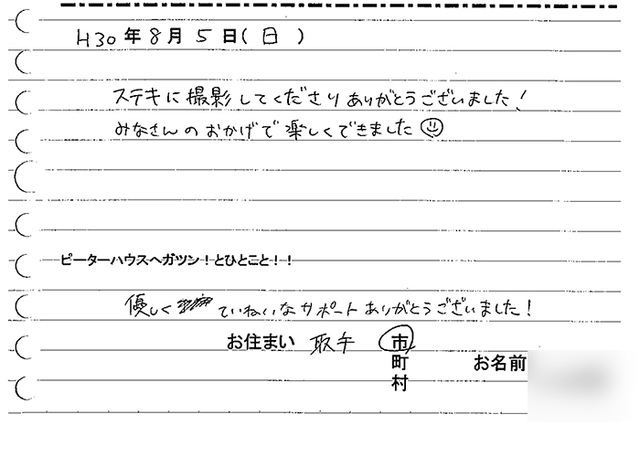 H30年8月5日(日)
ステキに撮影してくださりありがとうございました!
みなさんのおかげで楽しくできました
ピーターハウスへガツン!とひとこと!!
優しく ていねいなサポートありがとうございました!
お住まい 取手 市
町 お名前
村